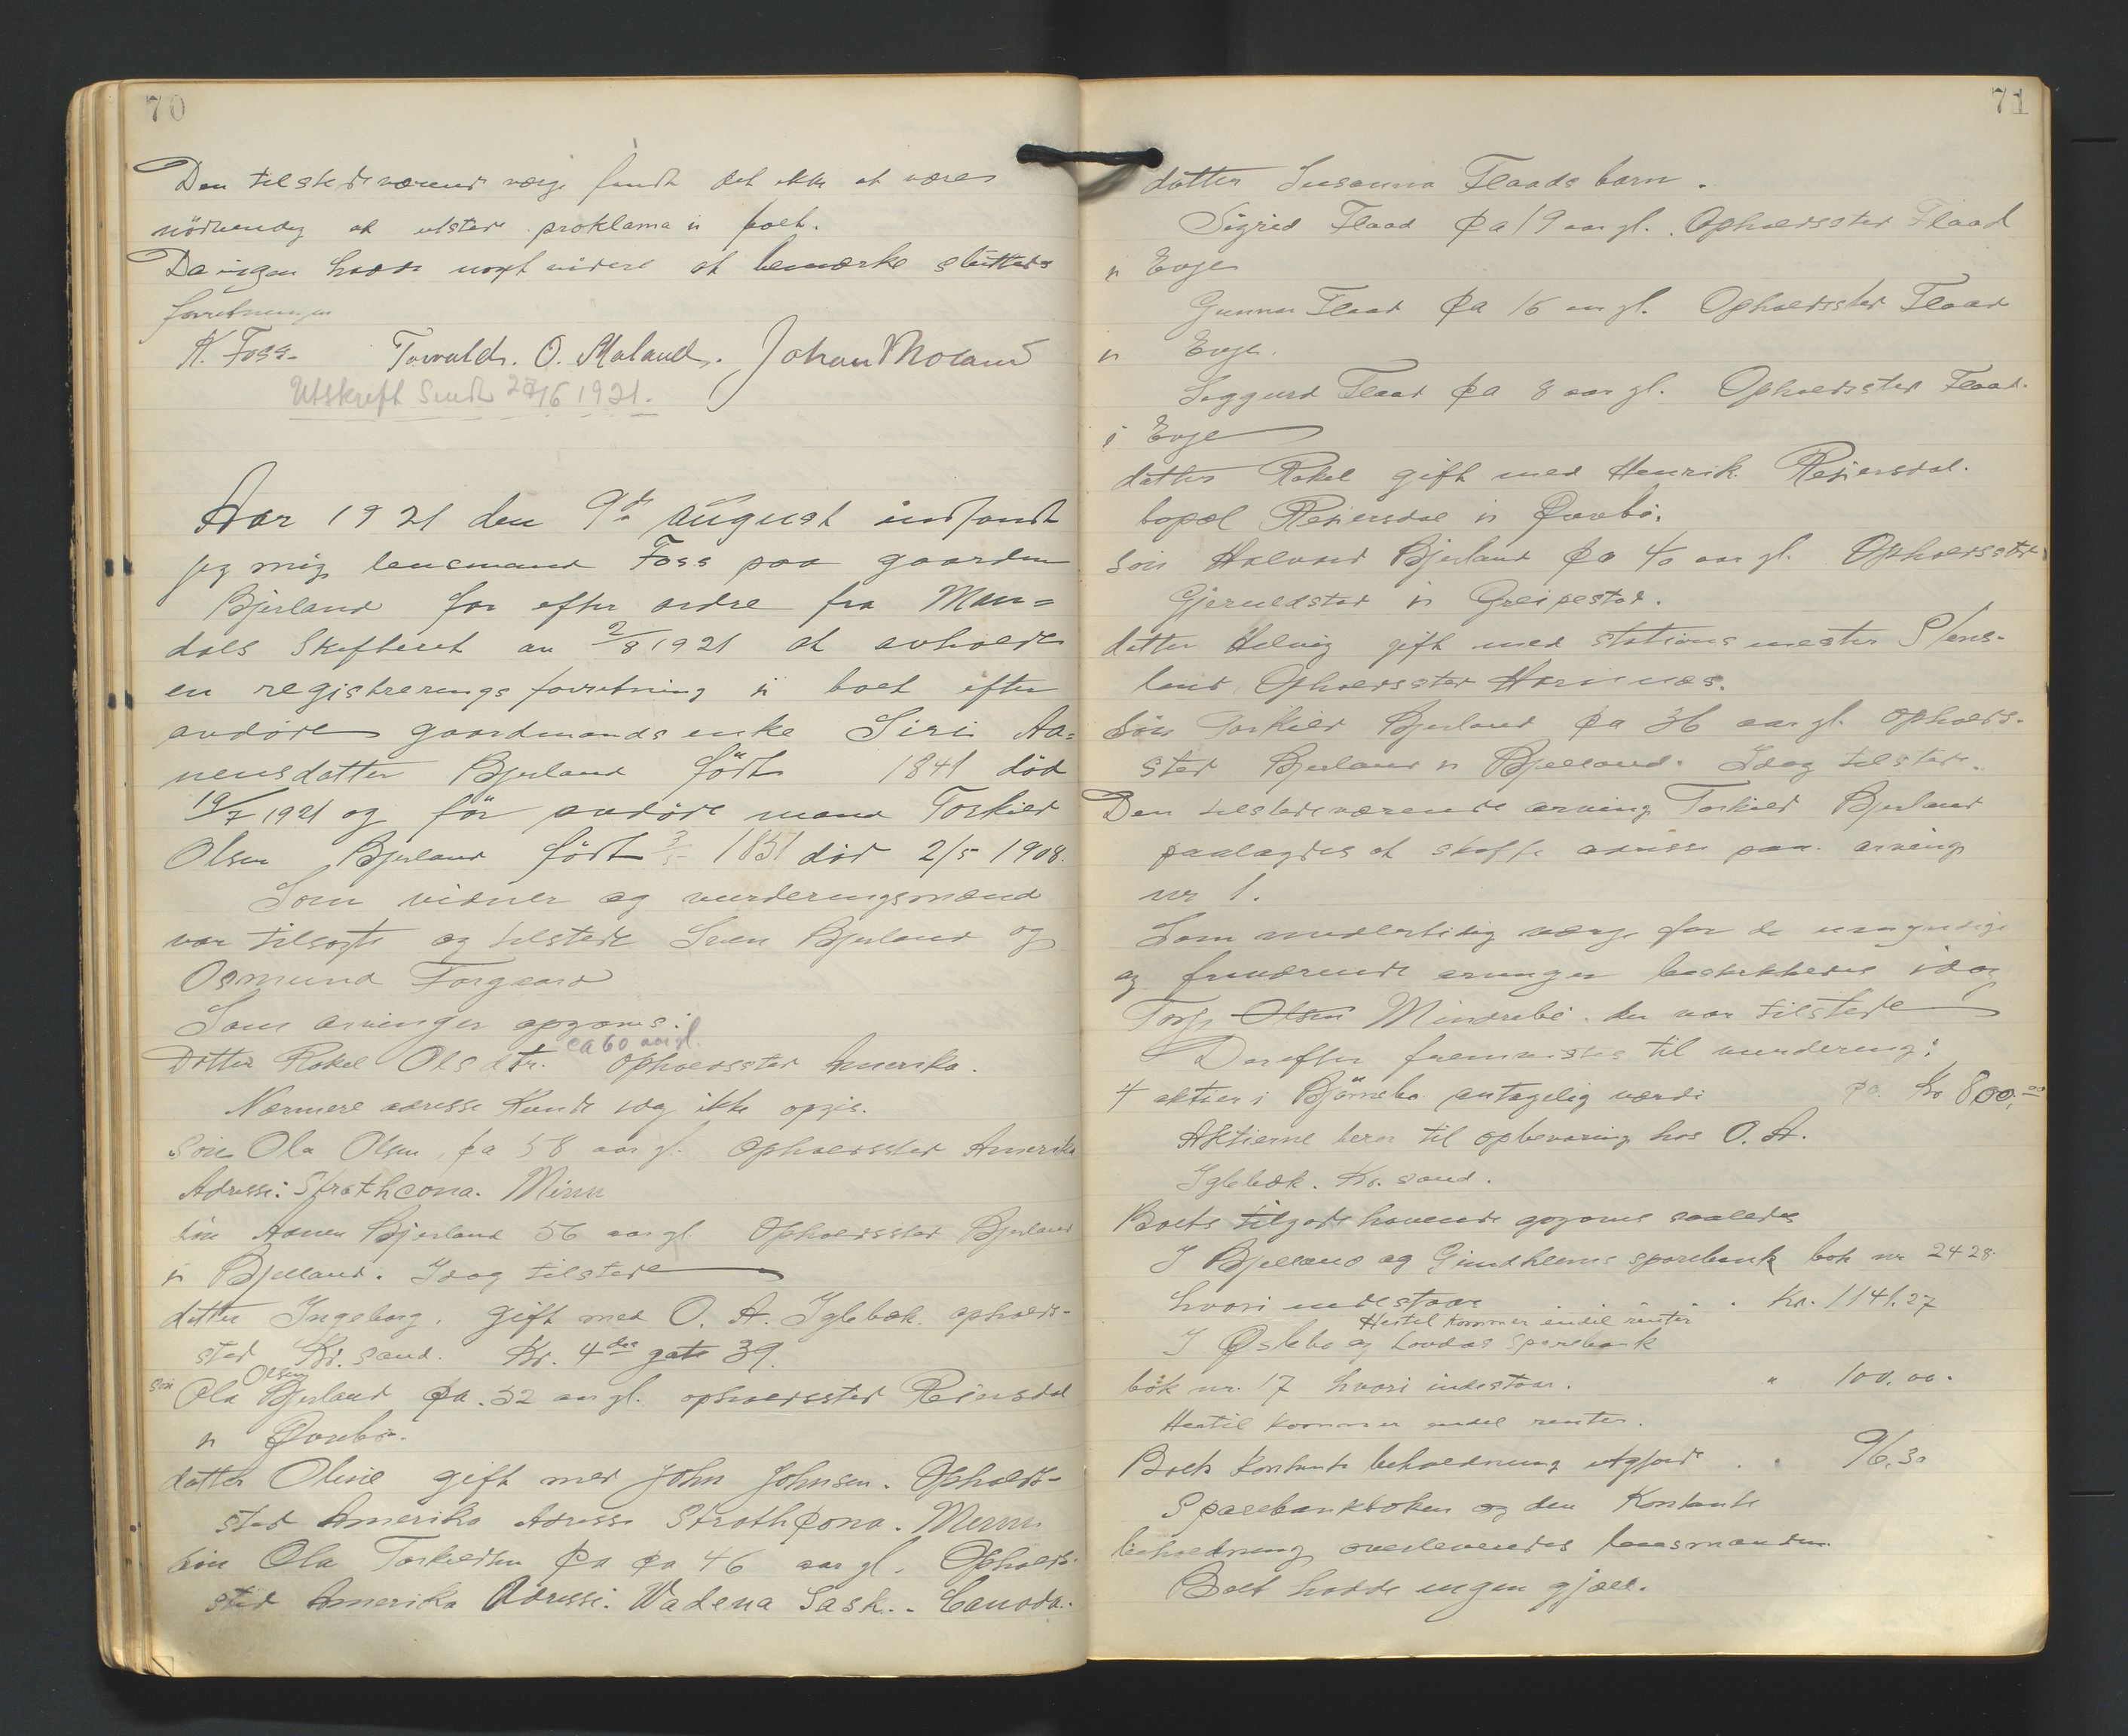 70
Den tilstedeværende værge fandt det ikke at være
nödvendig at utstede proklama i boet.
Da ingen hadde noget videre at bemærke sluttedes
forretningen
K. Foss. Torvald. O. Moland. Johan Moland
Utskrift Sendt 28/6 1921.
Aar 1921 den 9de August indfandt
jeg mig lensmand Foss paa gaarden
Bjerland for efter ordre fra Man=
dals Skifteret av 2/8 1921 at avholde
en registreringsforretning i boet efter
avdöde gaardmandsenke Siri Aa=
nensdatter Bjerland födt 1841 död
19/7 1921 og för avdöde mand Torkild
Olsen Bjerland födt 3/5 1831 död 2/5 1908.
Som vidner og vurderingsmænd
var tilsagte og tilstede Sven Bjerland og
Osmund Forgaard
Som arvinger opgaves:
ca 60 aar gl.
Datter Rakel Olsdtr. opholdssted Amerika.
Nærmere adresse Kunde idag ikke opgis.
Sön Ola Olsen, ca 58 aar gl. opholdssted Amerika
Adresse: Strathcona. Minn
Sön Aanen Bjerland 56 aar gl Opholdssted Bjerland
i Bjelland. Idag tilstede
datter Ingeborg. gift med O. A. Iglebæk. opholds-
sted Kr. sand. Kr. 4des gate 39.
Olsen
sön Ola Bjerland ca. 52 aar gl. opholdssted Reiersdal
i Øvrebö.
datter Oline gift med John Johnsen. Opholds-
sted Amerika Adresse Strathcona. Minn.
Sön Ola Torkildsen ca ca 46 aar gl. Opholds-
sted Amerika Adresse. Wadena Sask.. Canada.
71
datter Susanna Flaads barn.
Sigrid Flaad ca 19 aar gl. Opholdssted Flaad
i Evje
Gunnar Flaad ca 16 aar gl. Opholdssted Flaad
i Evje.
Siggurd Flaad ca 8 aar gl. Opholdssted Flaad.
i Evje
datter Rakel gift med Henrik Reiersdal.
bopæl Reiersdal i Øvrebö.
Sön Halvard Bjerland ca 40 aar gl. Opholdssted
Gjervldstad i Greipestad.
datter Helvig gift med stationsmester Stens-
land, Opholdssted Hornnæs.
Sön Torkild Bjerland ca 36 aar gl. opholds-
sted Bjerland i Bjelland. Idag tilstede.
Den tilstedeværende arving Torkild Bjerland
paalagdes at skaffe adresse paa arving
nr 1.
Som midlertidig værge for de umyndige
og fraværende arvinger beskikkedes idag
Torj Olsen Mindrebö. der var tilstede
Derefter fremvistes til vurdering:
4 aktier i Björnebo antagelig værdi ca. Kr 800,00
Aktierne beror til opbevaring hos O. A.
Iglebæk. Kr. sand.
Boets tilgodehavende opgaves saaledes
I Bjelland og Grindheims sparebank bok nr 2428.
hvori indestaar . . . . Kr. 1141.27
Hertil kommer endel renter
I Øslebö og Lovdal Sparebank
bok nr. 17 hvori indestaar. " 100.00.
Hertil kommer endel renter.
Boets Kontante beholdning utgjorde . . 96.30
Sparebankboken og den Kontante
beholdning overleveredes lensmanden.
Boet hadde ingen gjæld.